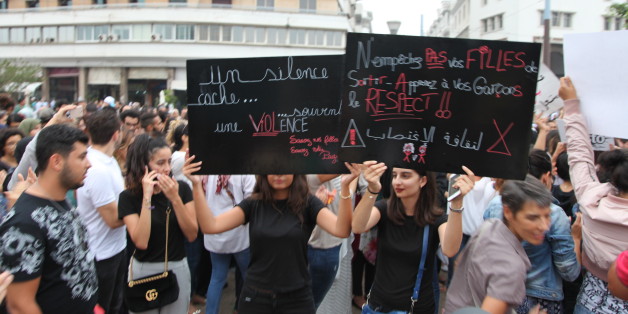 Un silence
cache... souvent
une VIOLENCE
N'empêchez PAS vos FILLES de
Sortir - Apprenez à vos Garçons
le RESPECT !!
لا لثقافة الاغتصاب